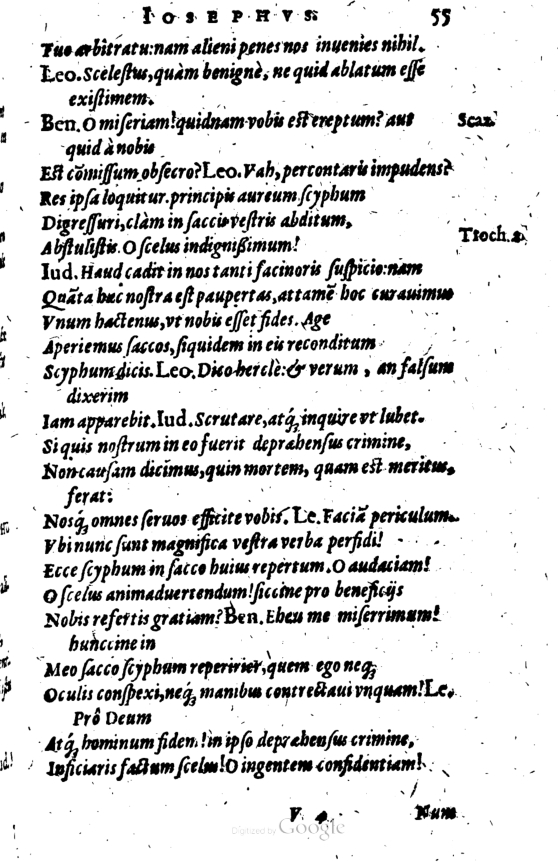 IOSEPHVS. 55
Tuo arbitratu: nam alieni penes nos inuenies nihil.
Leo. Scelestus, quàm benignè, ne quid ablatum esse
existimem.
Ben. O miseriam! quidnam vobis est ereptum? aut Scaz.
quid à nobis
Est cõmissum obsecro? Leo. Vah, percontaris impudens?
Res ipsa loquitur. principis aureum scyphum
Digressuri, clàm in saccis vestris abditum,
Abstulistis. O scelus indignißimum! Troch.
Iud. Haud cadit in nos tanti facinoris suspicio: nam
Quãta hæc nostra est paupertas, attamẽ hoc curauimus
Vnum hactenus, vt nobis esset fides. Age
Aperiemus saccos, siquidem in eis reconditum
Scyphum dicis. Leo. Dico herclè: & verum, an falsum
dixerim
Iam apparebit. Iud. Scrutare, atq́; inquire vt lubet.
Si quis nostrum in eo fuerit depræhensus crimine,
Non causam dicimus, quin mortem, quam est meritus,
ferat:
Nosq́; omnes seruos efficite vobis. Le. Faciã periculum.
Vbi nunc sunt magnifica vestra verba perfidi!
Ecce scyphum in sacco huius repertum. O audaciam!
O scelus animaduertendum! siccine pro beneficijs
Nobis refertis gratiam? Ben. Eheu me miserrimum!
hunccine in
Meo sacco scyphum reperirier, quem ego neq́;
Oculis conspexi, neq́; manibus contrectaui vnquam! Le.
Prô Deum
Atq́; hominum fidem! in ipso depræhensus crimine,
Inficiaris factum scelus! O ingentem confidentiam!
V Num
Digitized by Google